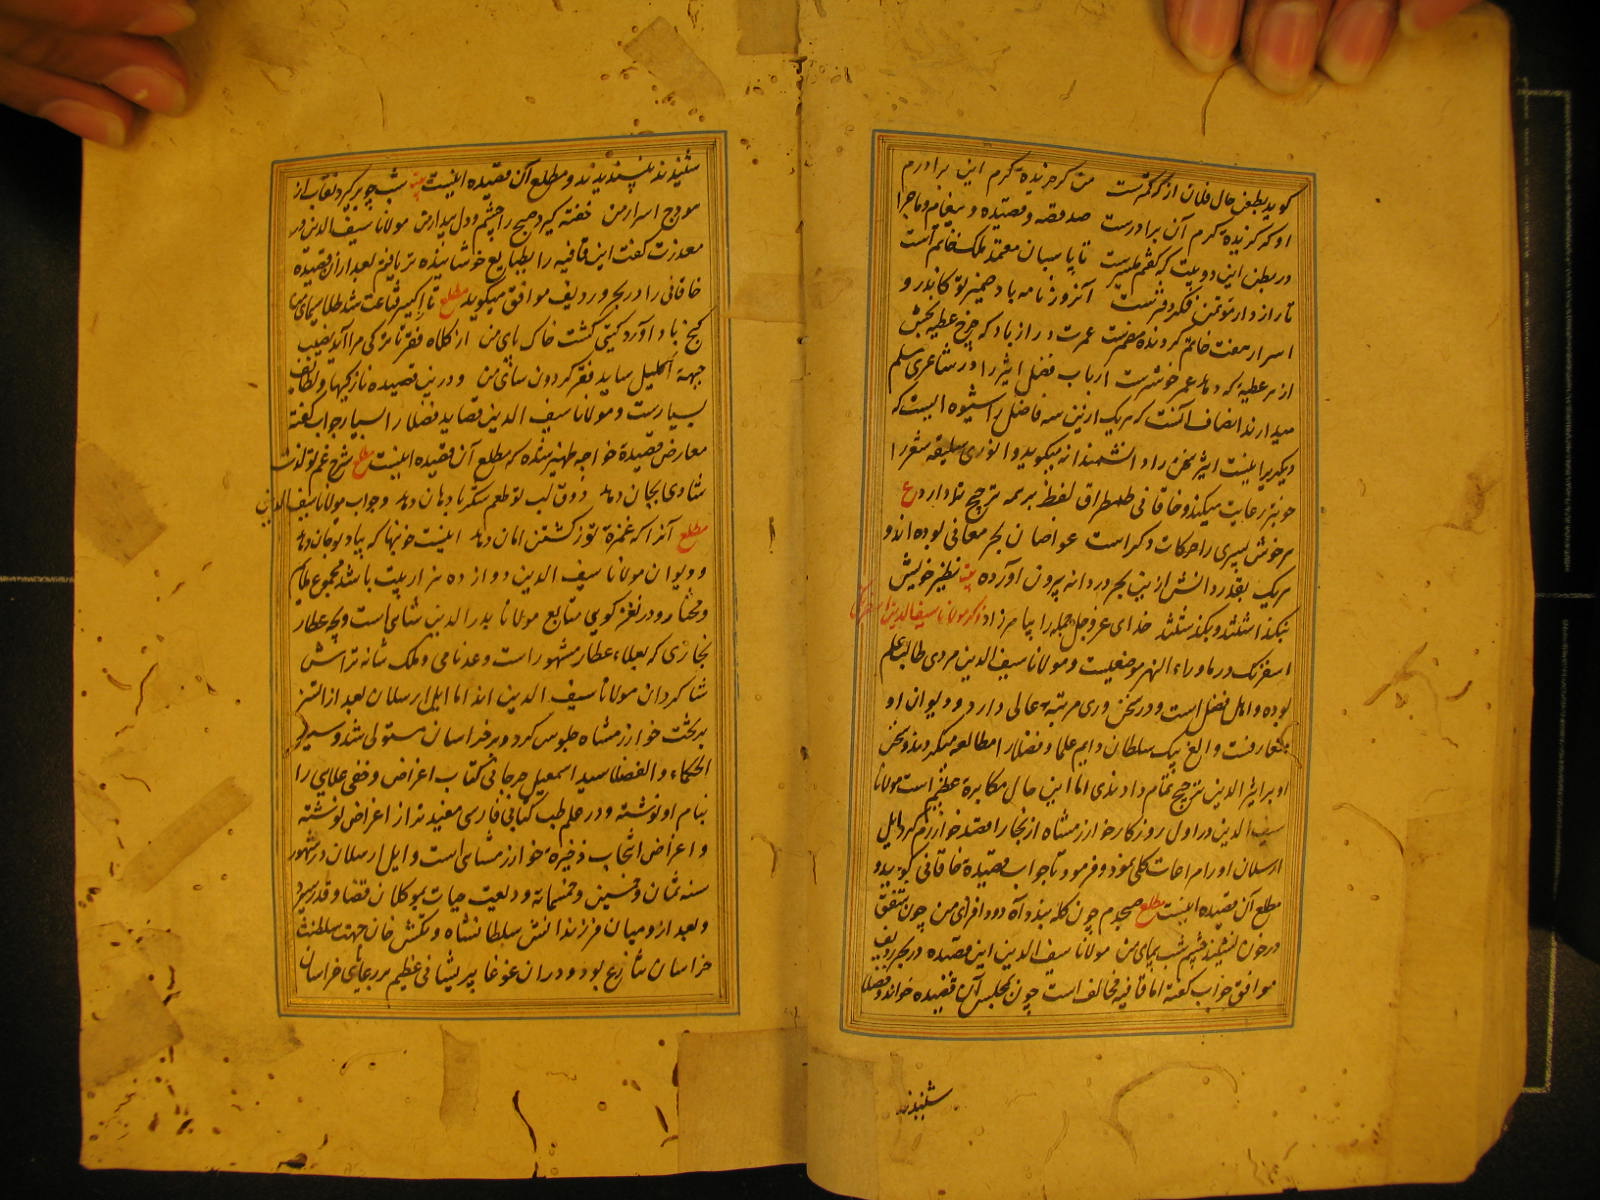 گوید بطعن حال فلان از کرمترست من گر خزنده کرم این برادرم
او گر گزیده کرم آن برادرست صد قصه و قصیده و پیغام و ماجرا
در بطن این دو بیت که گفتم میسرست تا پاسبان معتمد ملک خاتم است
تا رازدار مؤتمن فکر دفترست آنروز نامه باد ضمیر تو کاندرو
اسرار هفت خاتم گردنده مضمرست عمرت دراز باد که چرخ عطیه بخش
از هر عطیه که دهد عمر خوشترست ارباب فضل اثیر را در شاعری مسلم
میدارند انصاف آنست که هریک ازین سه فاضل را شیوه ایست که
دیگریرا نیست اثیر سخن را دانشمندانه میگوید و انوری سلیقه شعر را
خوبتر رعایت میکند و خاقانی طمطراق لفظ بر همه ترجیح تا دارد ع
هر خوش پسری را حرکات دگر است غواصان بحر معانی بوده اند و
هریک بقدر دانش ازین بحر دردانه بیرون آورده بیت نظیر خویش
بنگذاشتند و بگذشتند خدای عز و جل جمله را بیامرزاد ذکر مولانا سیف الدین اسفرنگی
اسفرنگ در ماوراء النهر موضعیست و مولانا سیف الدین مردی طالب علم
بوده و اهل فضل است و در سخن وری مرتبه عالی دارد و دیوان او
متعارفست و الغ بیک سلطان دایم علما و فضلا را مطالعه میکردند و سخن
او بر اثیر الدین ترجیح تمام دادندی اما این حال مکابره عظیم است مولانا
سیف الدین در اول روزگار خوارزمشاه از بخارا قصد خوارزم کرد ایل
ارسلان او را مراعات کلی نمود و فرمود تا جواب قصیده خاقانی گوید و
مطلع آن قصیده اینست مطلع صبحدم چون کله بندد آه دود آسای من چون شفق
در خون نشیند چشم شب پیمای من مولانا سیف الدین این قصیده در بحر و ردیف
موافق جواب گفته اما قافیه مخالف است چون بمجلس آن قصیده خواند و فضلا
شنیدند
شنیدند بپسندیدند و مطلع آن قصیده اینست بیت شب چو برگیرد نقاب از
هودج اسرار من خفته گیرد صبح را چشم و دل بیدار من مولانا سیف الدین در
معذرت گفت این قافیه را بطبایع خوشاینده تر یافتم بعد از آن قصیده
خاقانی را در بحر و ردیف موافق میگوید مطلع تا اکسیر قناعت شد طلا سیمای من
گنج باد آورد گیتی گشت خاک پای من از کلاه فقر تا ترکی مرا آمد نصیب
جبهه اکلیل ساید فقر گردون سای من و درین قصیده نازکیها و لطائف
بسیارست و مولانا سیف الدین قصاید فضلا را بسیار جواب گفته
معارض قصیده خواجه ظهیر شده که مطلع آن قصیده اینست مطلع شرح غم تو لذت
شادی بجان دهد ذوق لب تو طعم شکر با دهان دهد و جواب مولانا سیف الدین
مطلع آنرا که غمزه تو ز کشتن امان دهد اینست خونبها که بیاد تو جان دهد
و دیوان مولانا سیف الدین دوازده هزار بیت باشد مجموع ملایم
و مختار و در نغز گویی متابع مولانا بدر الدین شاشی است و بچه عطار
بخارزی که بعلاء عطار مشهور است و عدنامی و ملک شانه تراش
شاگردان مولانا سیف الدین اند اما ایل ارسلان بعد از اتسز
بر تخت خوارزمشاه جلوس کرد و بر خراسان مستولی شد و سید
الحکماء و الفضلا سید اسمعیل جرجانی کتاب اغراض و خفی علایی را
بنام او نوشته و در علم طب کتابی فارسی مفیدتر از اغراض نوشته
و اغراض انتخاب ذخیره خوارزمشاهی است و ایل ارسلان در شهور
سنه ثمان و خمسین و خمسمائه ودیعت حیات بموکلان قضا و قدر سپرد
و بعد ازو میان فرزندانش سلطانشاه و تکش خان جهت سلطنت
خراسان تنازع بود و در آن غوغا پریشانی عظیم بر رعایای خراسان